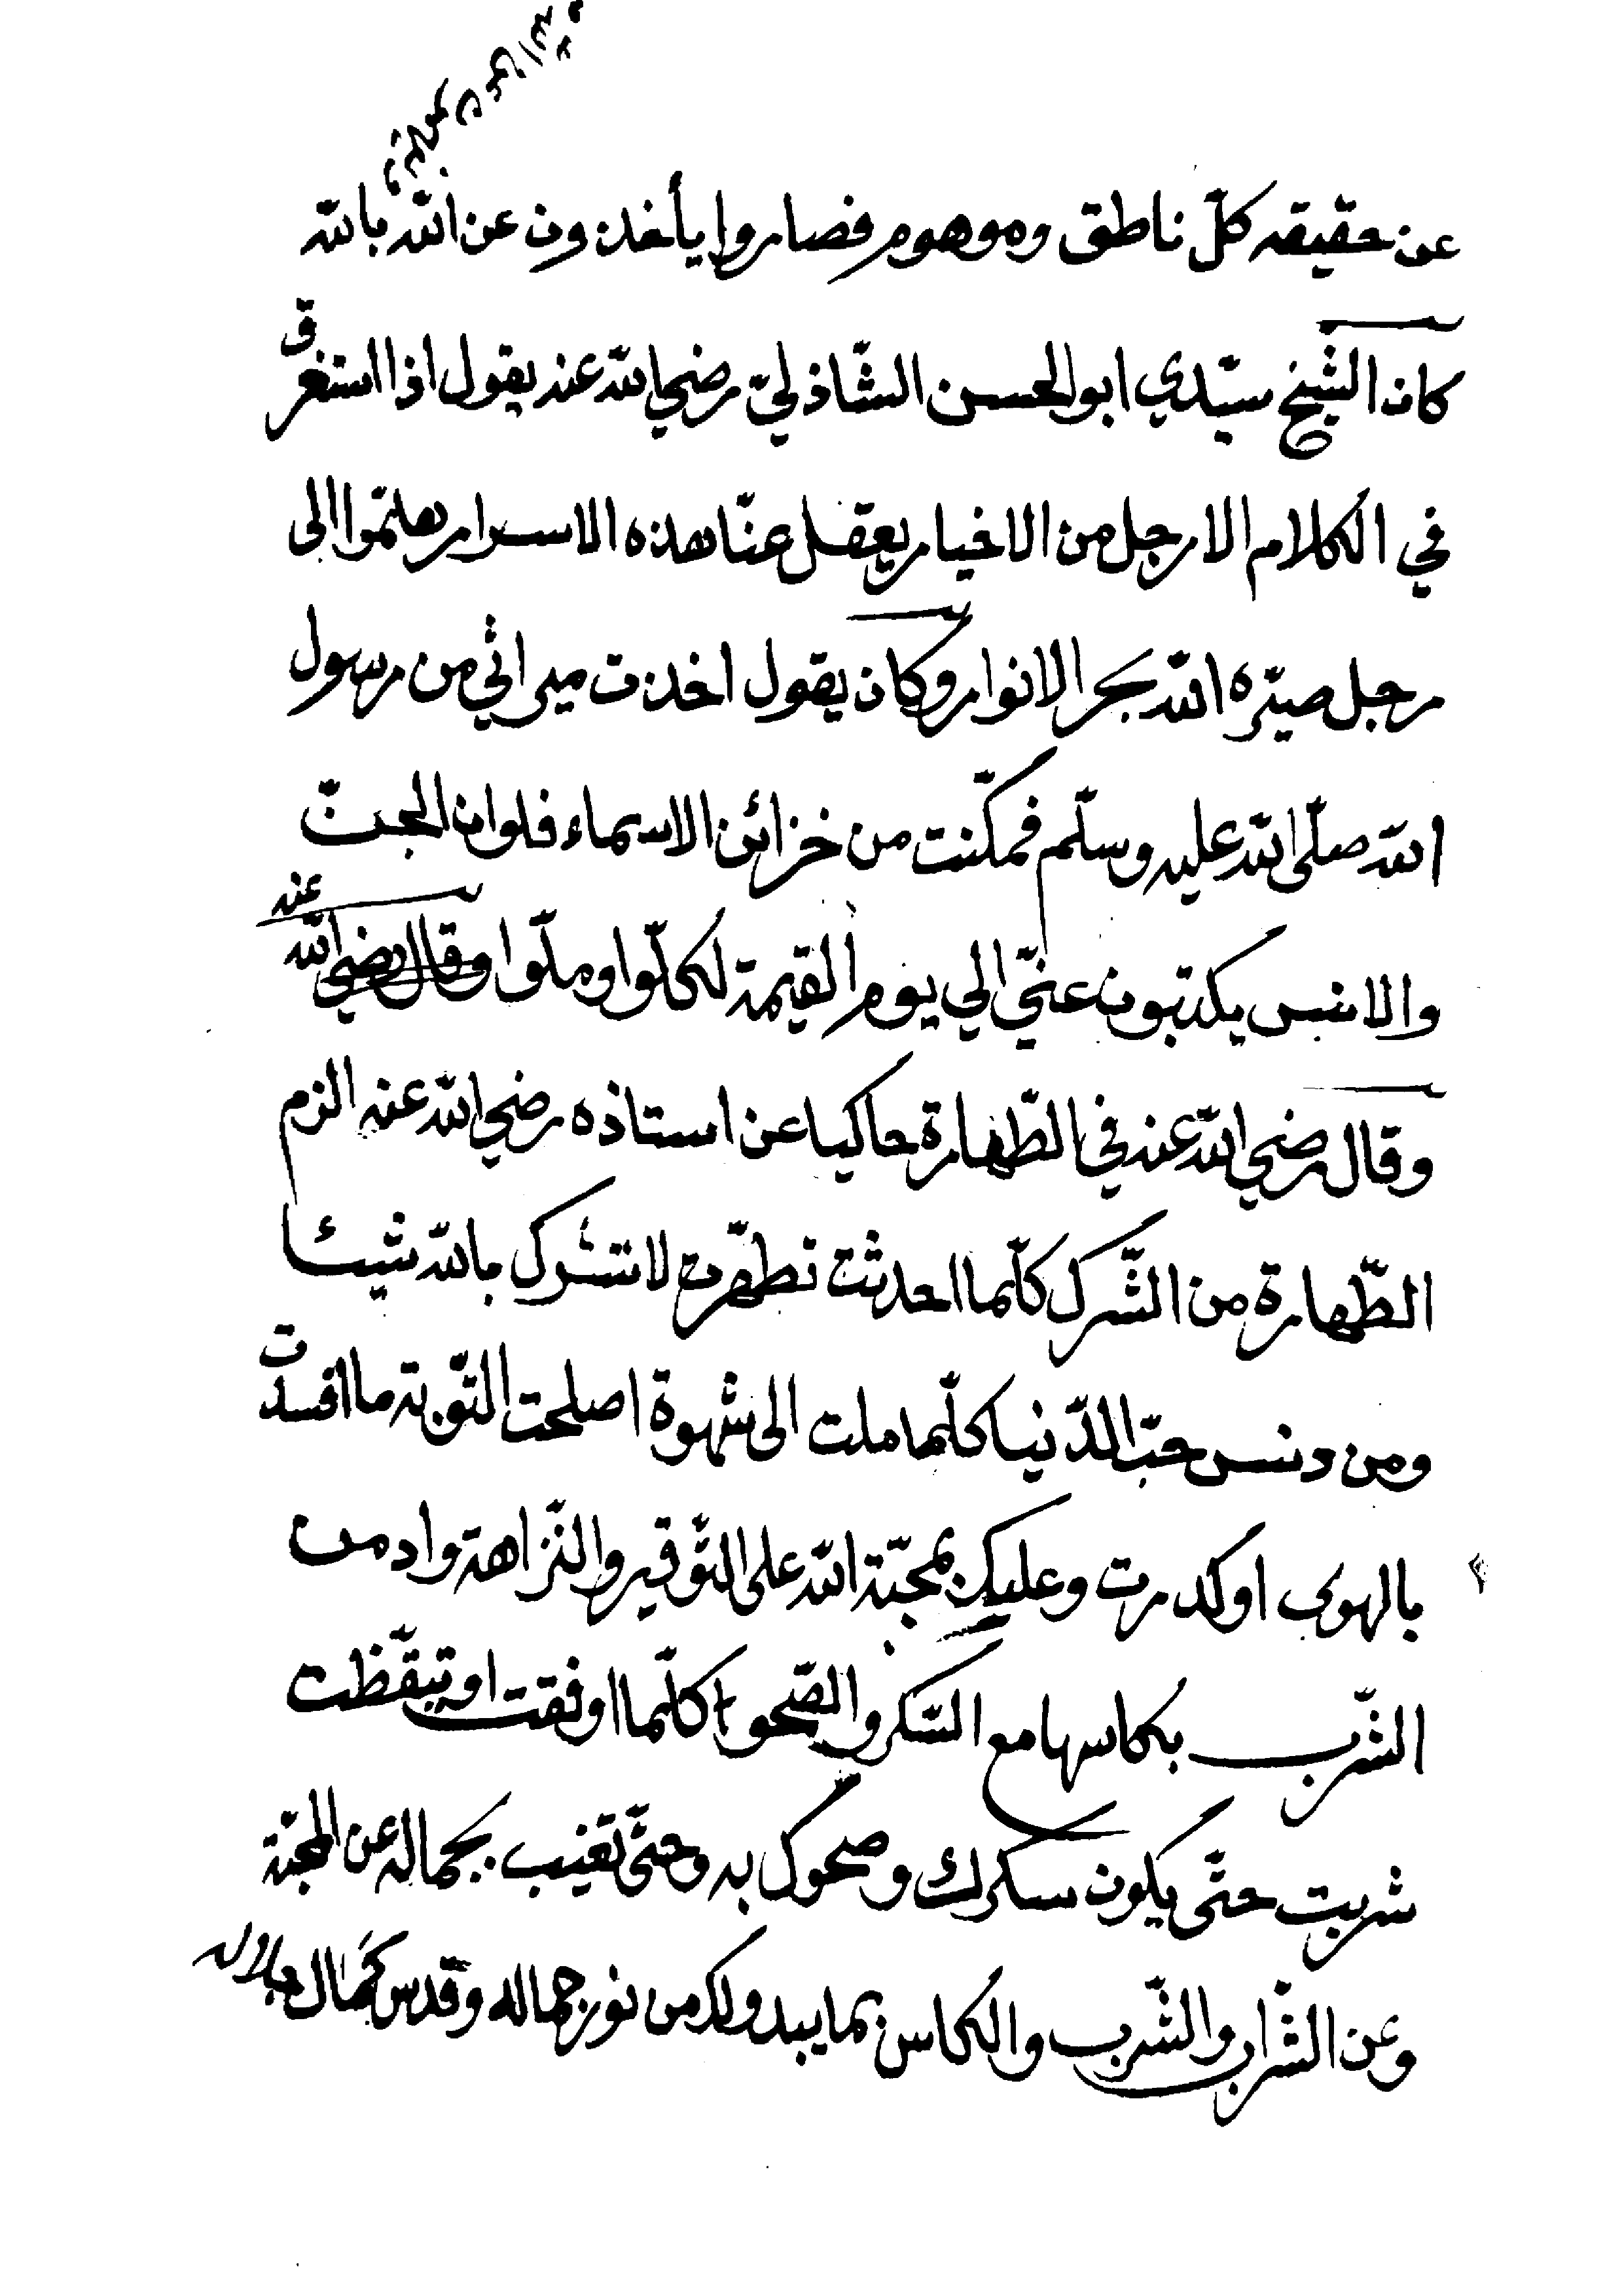 عن حقيقه كلّ ناطق وموهوم فصاروا يأخذون عن الله بالله
كان الشّيخ سيّدي ابو الحسن الشّاذليّ رضي الله عنه يقول اذا استغرق
في الكلام الا رجل من الاخيار يعقل عنّا هذه الاسرار هلمّوا الى
رجل صيّره الله بحر الانوار وكان يقول اخذت ميراثي من رسول
الله صلّى الله عليه وسلّم فمكّنت من خزائن الاسماء فلو ان الجنّ
والانس يكتبون عنّي الي يوم القيمة لكلّوا وملّوا وقال رضي الله عنه
وقال رضي الله عنه في الطّهارة حاكيا عن استاذه رضي الله عنه الزم
الطّهارة من الشّرك كلّما احدثت تطهّرت لا تشرك بالله شيئا
ومن دنس حبّ الدّنيا كلّما ملت الى شهوة اصلحت التّوبة ما افسدت
بالهوى او كدرت وعليك بمحبّة الله على التّوقير والنّزاهة وادمن
الشّرب بكاسها مع السّكر والصّحو كلّما اوفقت او تيقّظت
شربت حتّى يكون سكرك وصحوك به وحتّى تغيب بجماله عن المحبّة
وعن الشّراب والشّرب والكاس بما يبدو لك من نور جماله وقدس كمال جلاله